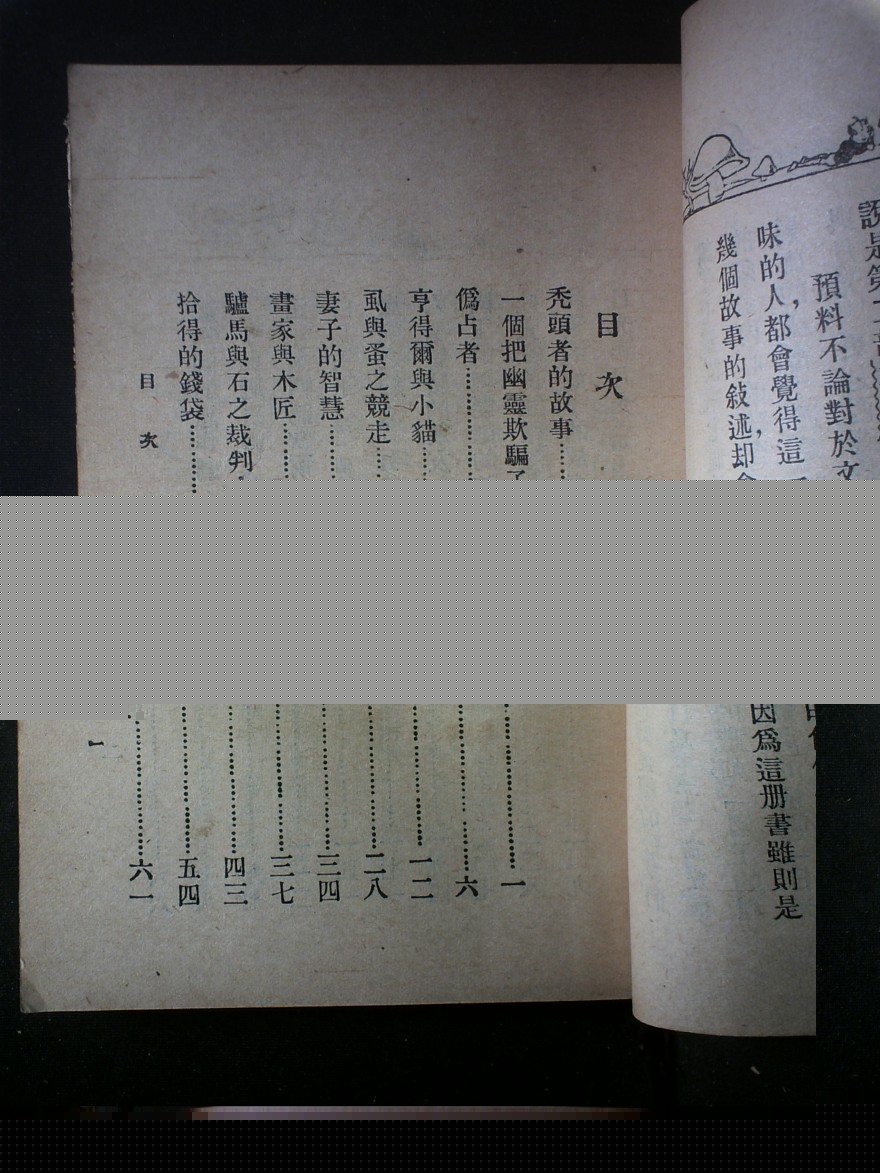 預料不論對於文
味的人，都會覺得這一 因爲這册書雖則是
幾個故事的敍述，却
目次
禿頭者的故事……一
一個把幽靈欺騙了……六
僞占者……一二
亨得爾與小貓……二八
虱與蚤之競走……三四
妻子的智慧……三七
畫家與木匠……四三
驢馬與石之裁判……五四
拾得的錢袋……六一
目次 一